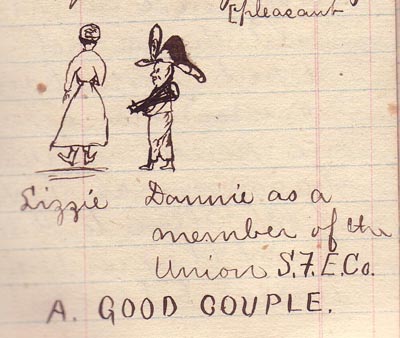 [pleasant
Lizzie Dannie as a
member of the
Union S.F.E.Co.
A. GOOD COUPLE.